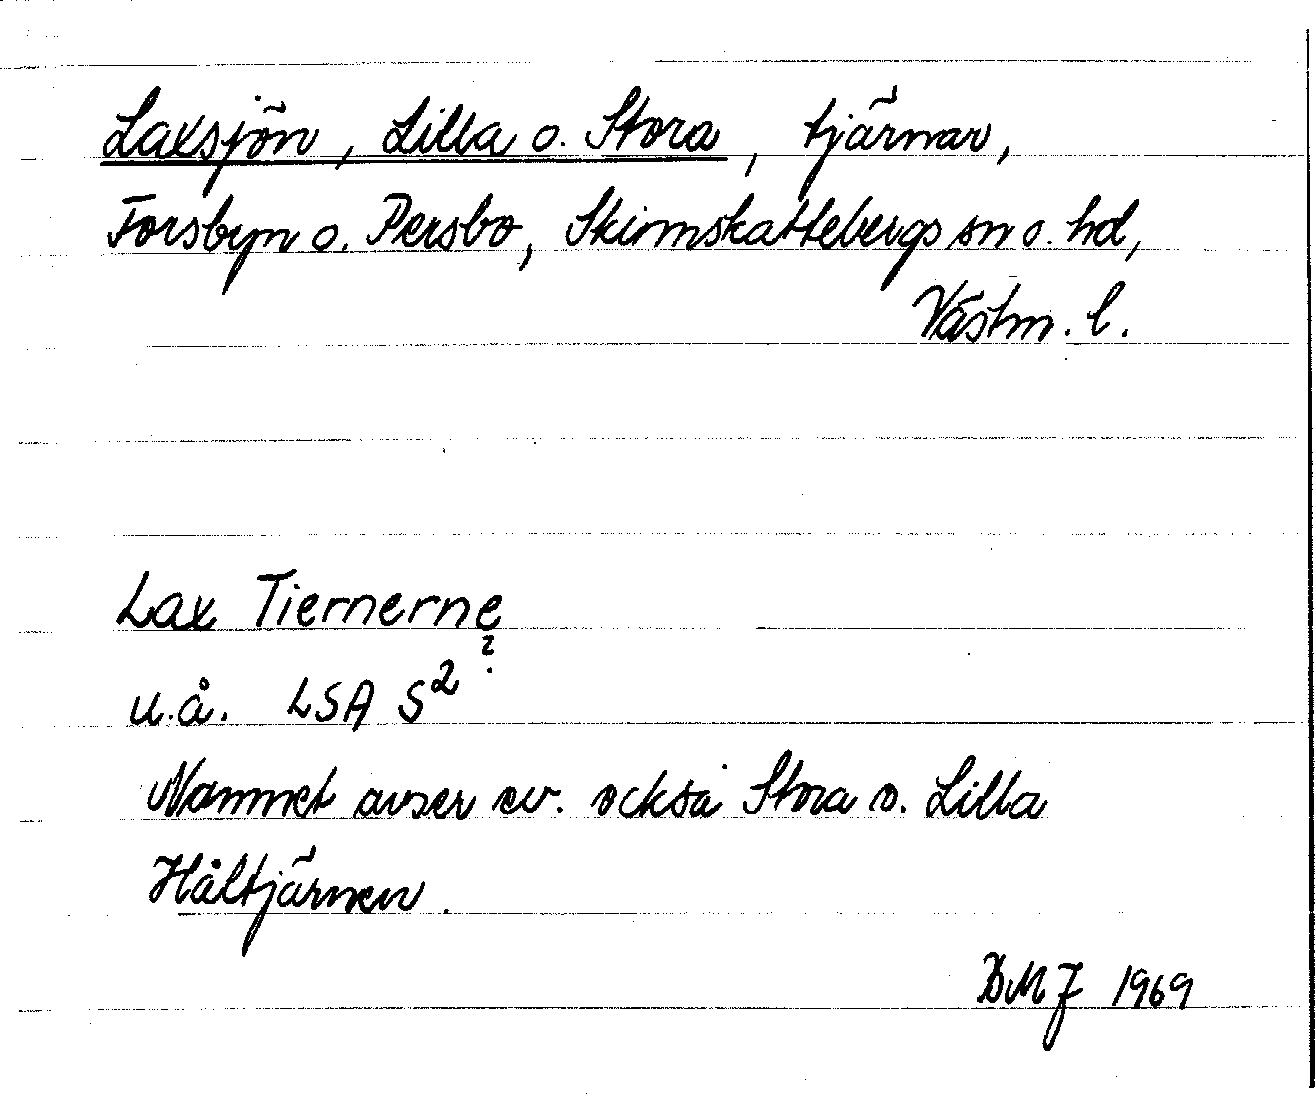 Laxsjön, Lilla o. Stora, tjärnar,
Forsbyn o. Persbo, Skinnskattebergs sn o. hd,
Västm. l.
Lax Tiernerne
?
u.å. LSA S²
Namnet avser ev. också Stora o. Lilla
Håltjärnen.
BMJ 1969